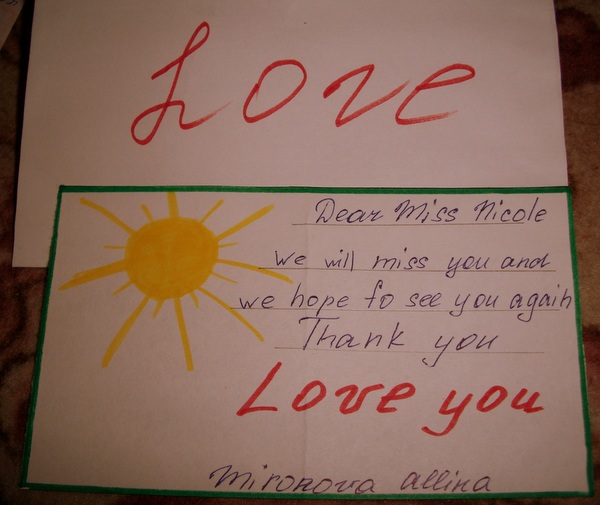 Love
Dear Miss Nicole
We will miss you and
we hope to see you again
Thank you
Love you
Mironova allina